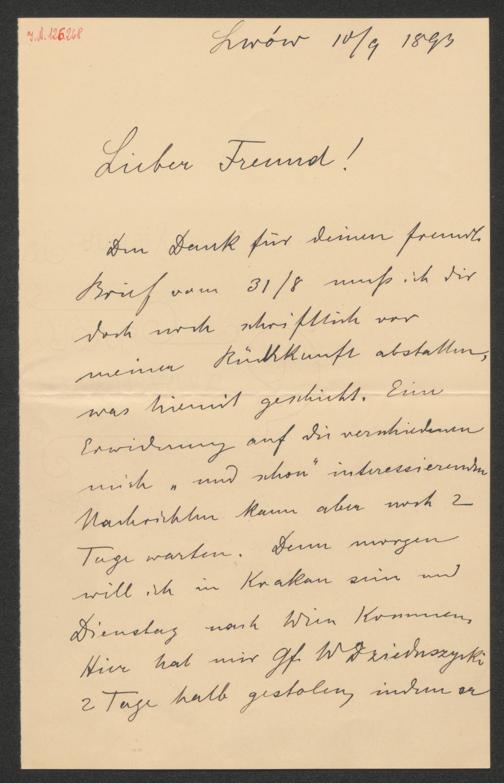 J.N. 126.268
Lwów 10/9 1893
Lieber Freund!
Den Dank für deinen freundl.
Brief vom 31/8 muß ich dir
doch noch schriftlich vor
meiner Rückkunft abstatten,
was hiemit geschieht. Eine
Erwiderung auf die verschiedenen
mich „und schon" interessierenden
Nachrichten kann aber noch 2
Tage warten. Denn morgen
will ich in Krakau sein und
Dienstag nach Wien kommen.
Hier hat mir Gf. W Dzieduszycki
2 Tage halb gestolen, indem er